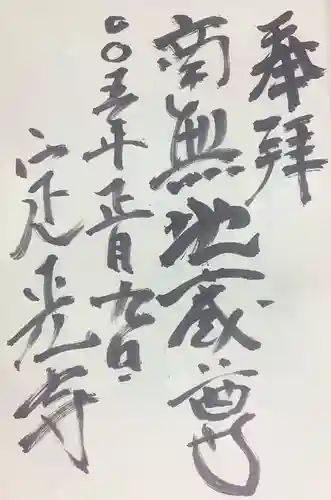 奉拝
南無地蔵尊
二〇〇五年正月九日
定光寺